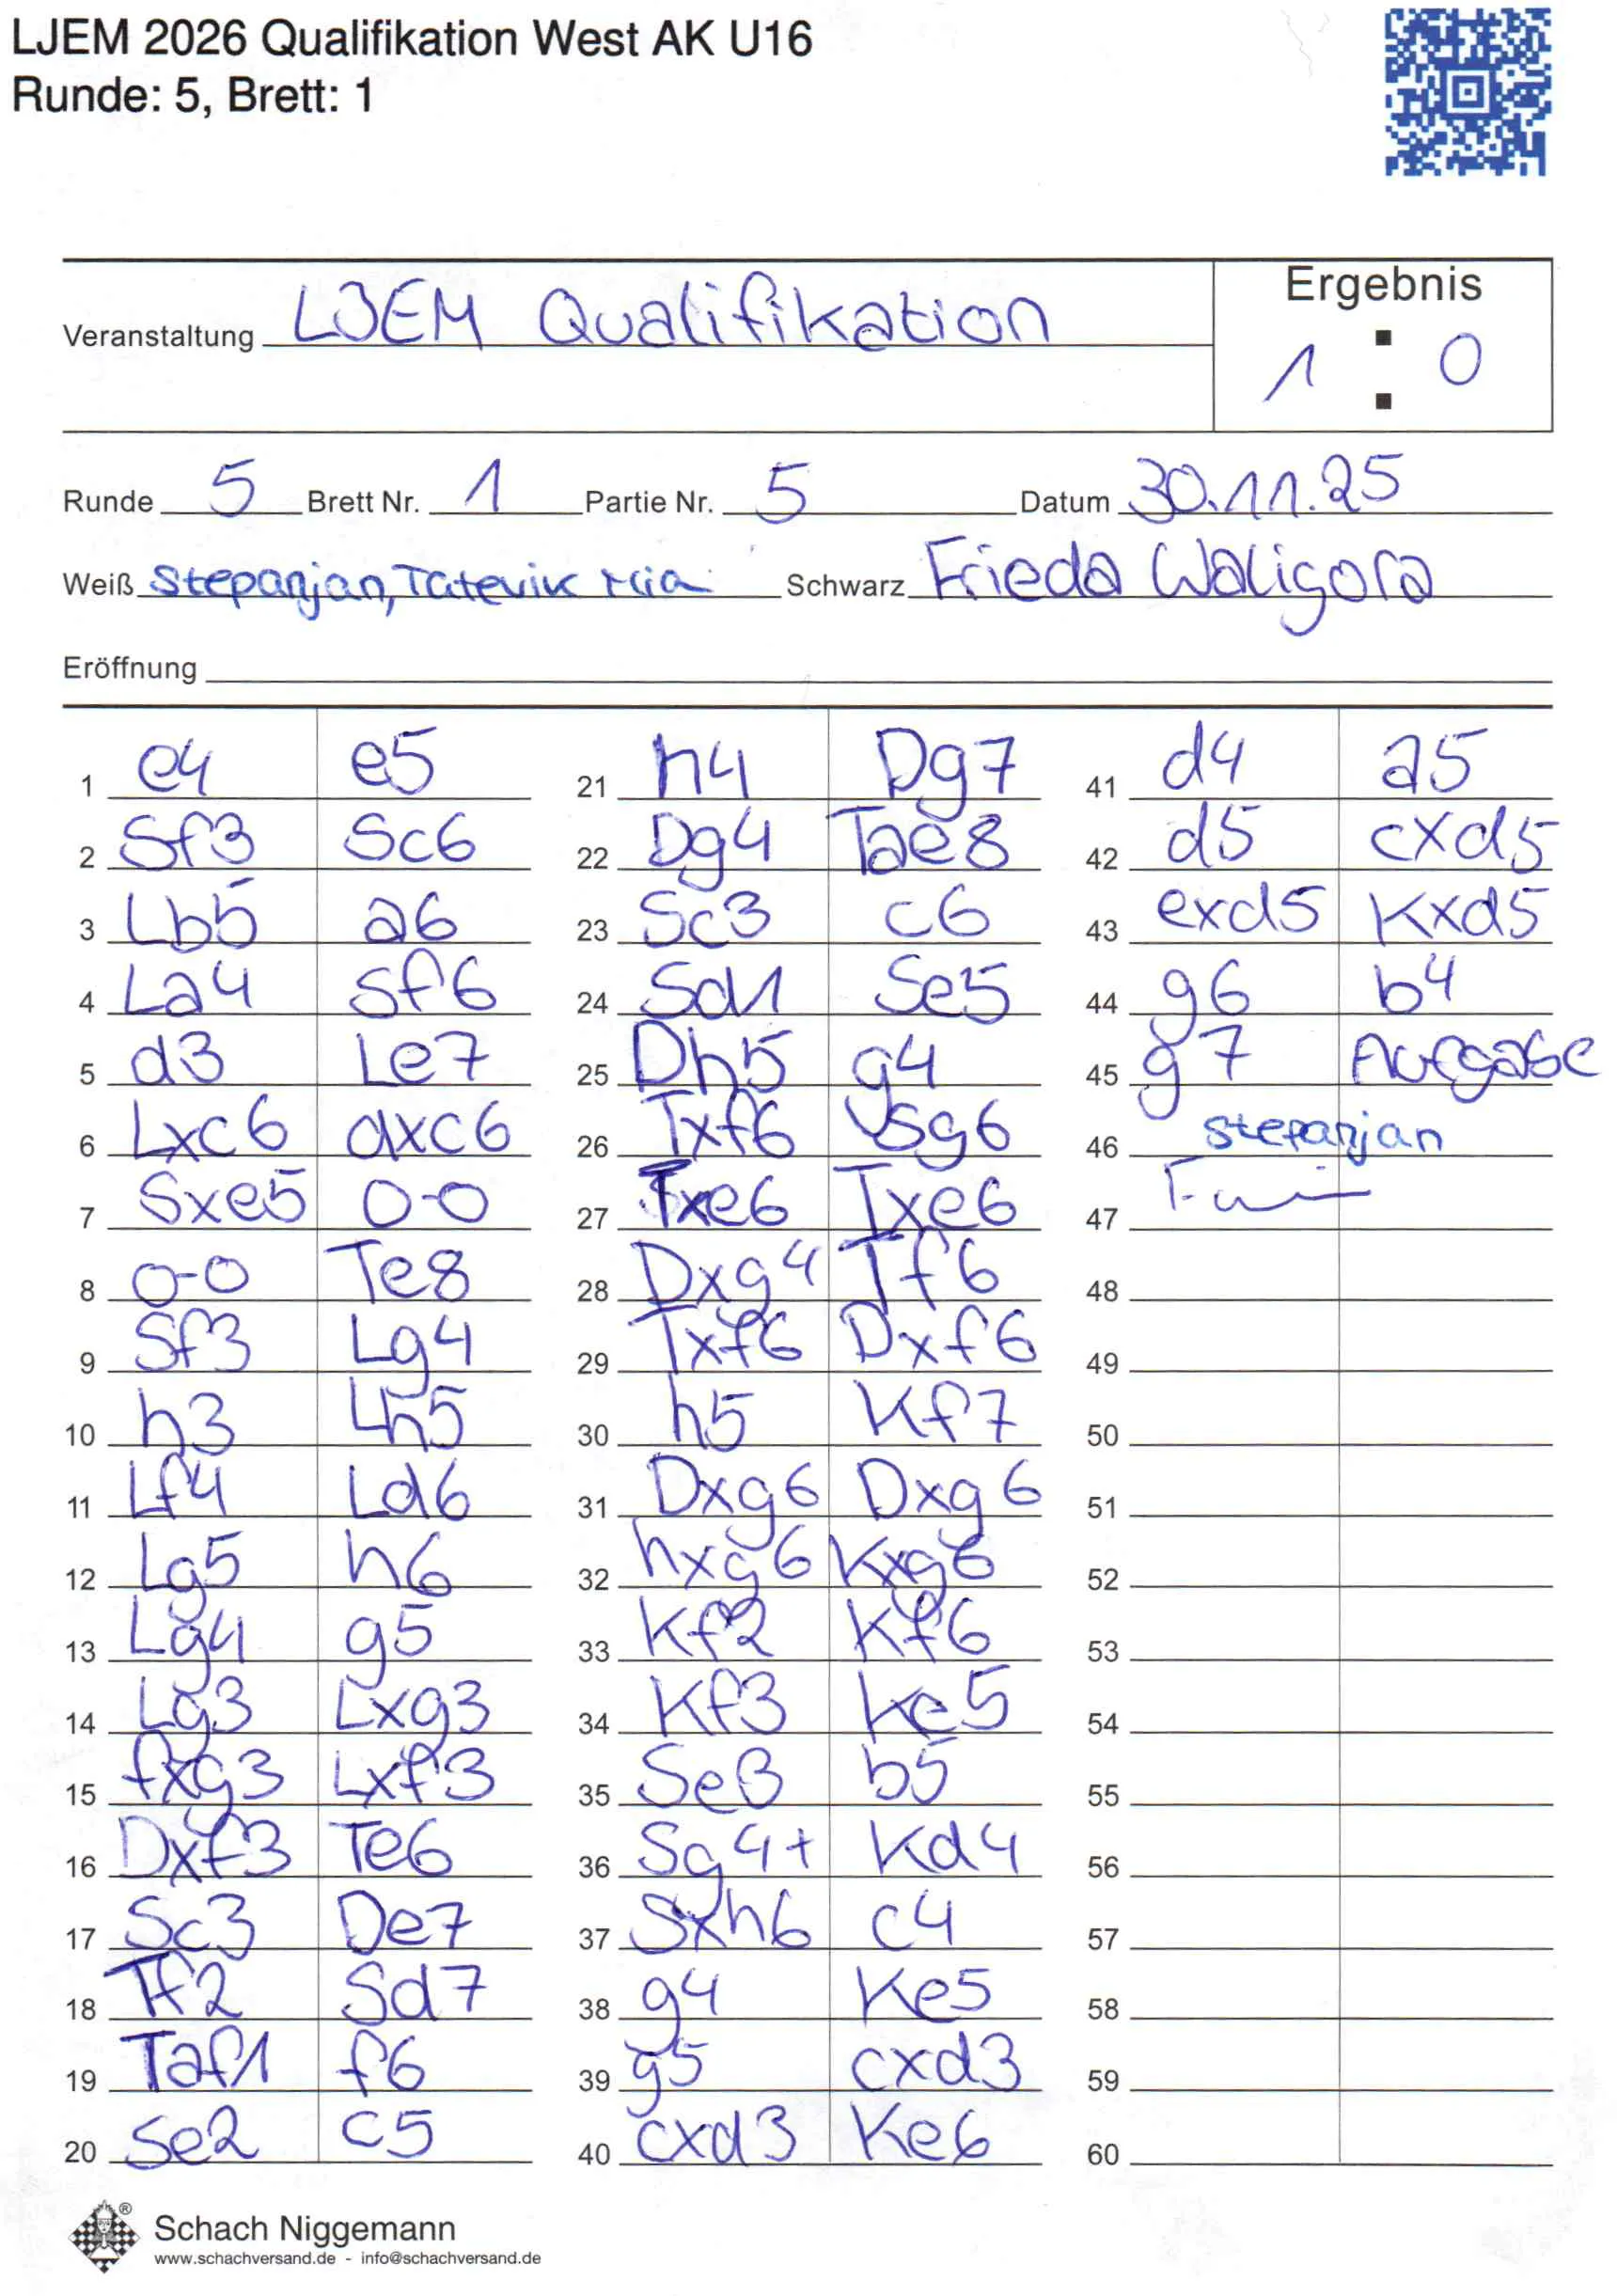 LJEM 2026 Qualifikation West AK U16
Runde: 5, Brett: 1
Veranstaltung LJEM Qualifikation
Ergebnis
1 : 0
Runde 5 Brett Nr. 1 Partie Nr. 5 Datum 30.11.25
Weiß Stepanjan, Tatevik Mia Schwarz Frieda Waligora
Eröffnung
1 e4 e5
2 Sf3 Sc6
3 Lb5 a6
4 La4 Sf6
5 d3 Le7
6 Lxc6 dxc6
7 Sxe5 0-0
8 0-0 Te8
9 Sf3 Lg4
10 h3 Lh5
11 Lf4 Ld6
12 Lg5 h6
13 Lg4 g5
14 Lg3 Lxg3
15 fxg3 Lxf3
16 Dxf3 Te6
17 Sc3 De7
18 Tf2 Sd7
19 Taf1 f6
20 Se2 c5
21 h4 Dg7
22 Dg4 Tae8
23 Sc3 c6
24 Sd1 Se5
25 Dh5 g4
26 Txf6 Sg6
27 Txe6 Txe6
28 Dxg4 Tf6
29 Txf6 Dxf6
30 h5 Kf7
31 Dxg6 Dxg6
32 hxg6 Kxg6
33 Kf2 Kf6
34 Kf3 Ke5
35 Se3 b5
36 Sg4+ Kd4
37 Sxh6 c4
38 g4 Ke5
39 g5 cxd3
40 cxd3 Ke6
41 d4 a5
42 d5 cxd5
43 exd5 Kxd5
44 g6 b4
45 g7 Aufgabe
46 Stepanjan
47
48
49
50
51
52
53
54
55
56
57
58
59
60
Schach Niggemann
www.schachversand.de - info@schachversand.de